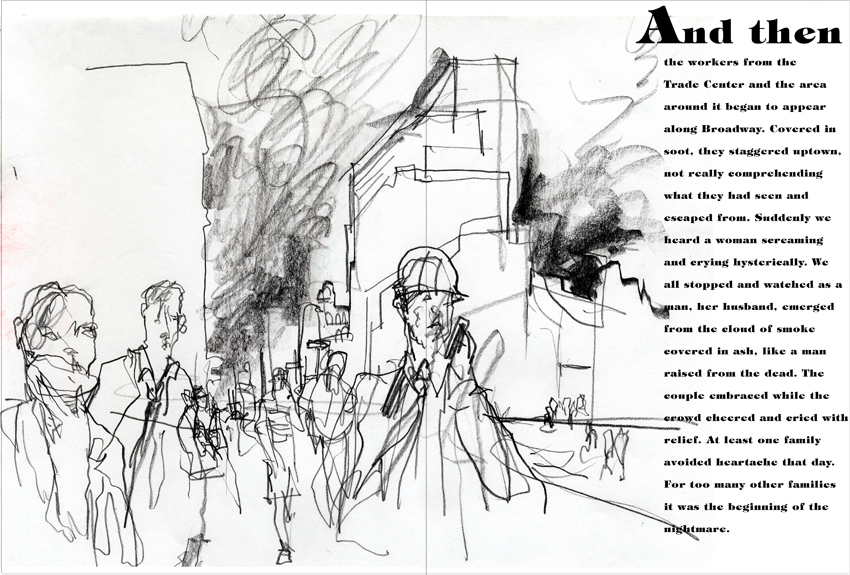 And then
the workers from the
Trade Center and the area
around it began to appear
along Broadway. Covered in
soot, they staggered uptown,
not really comprehending
what they had seen and
escaped from. Suddenly we
heard a woman screaming
and crying hysterically. We
all stopped and watched as a
man, her husband, emerged
from the cloud of smoke
covered in ash, like a man
raised from the dead. The
couple embraced while the
crowd cheered and cried with
relief. At least one family
avoided heartache that day.
For too many other families
it was the beginning of the
nightmare.